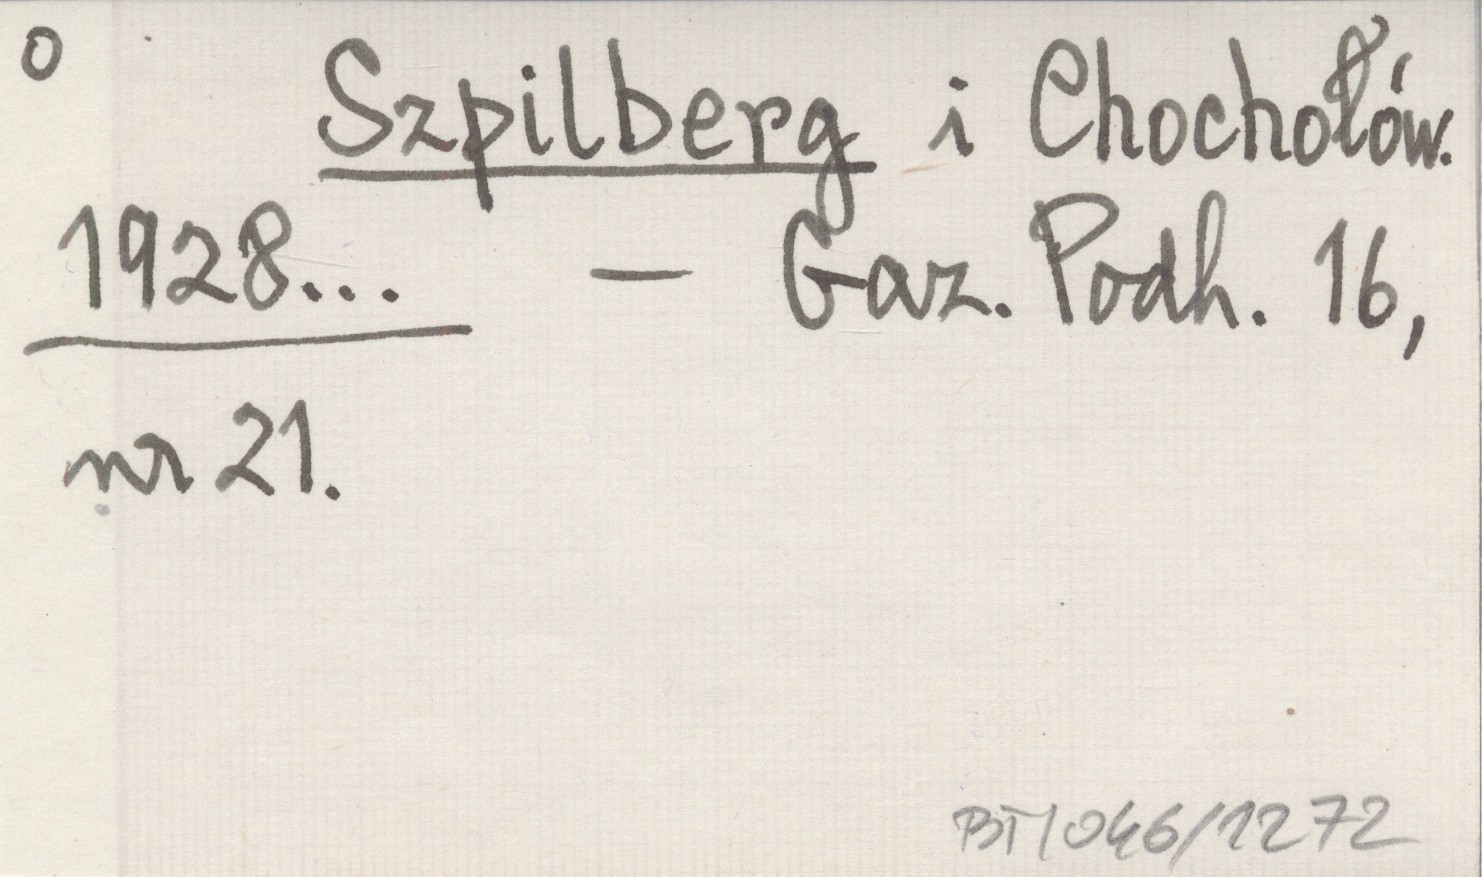 o
Szpilberg i Chochołów.
1928... — Gaz. Podh. 16,
nr 21.
BT/046/1272